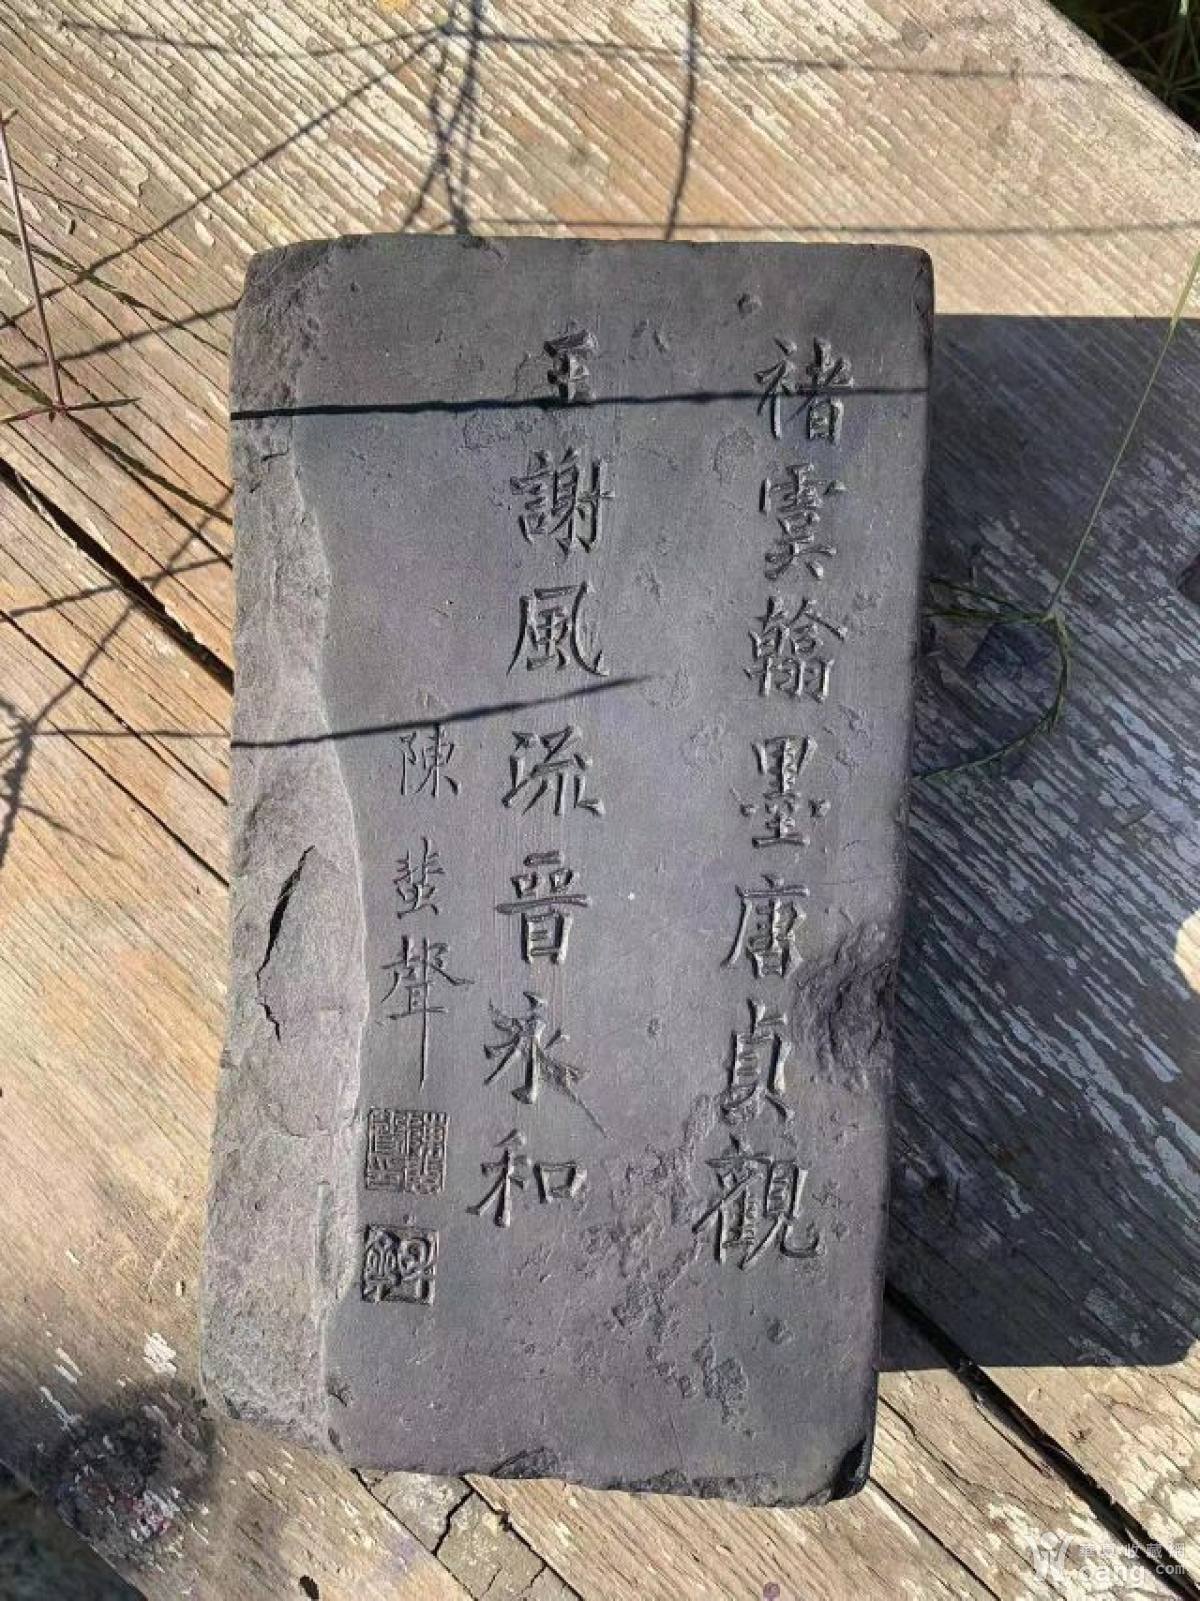 褚虞翰墨唐貞觀
王謝風流晉永和
陳蜚聲
華夏收藏網
cang.com